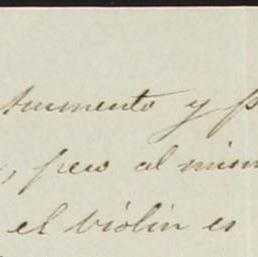 trumento y p
, pero al mism
el violin es